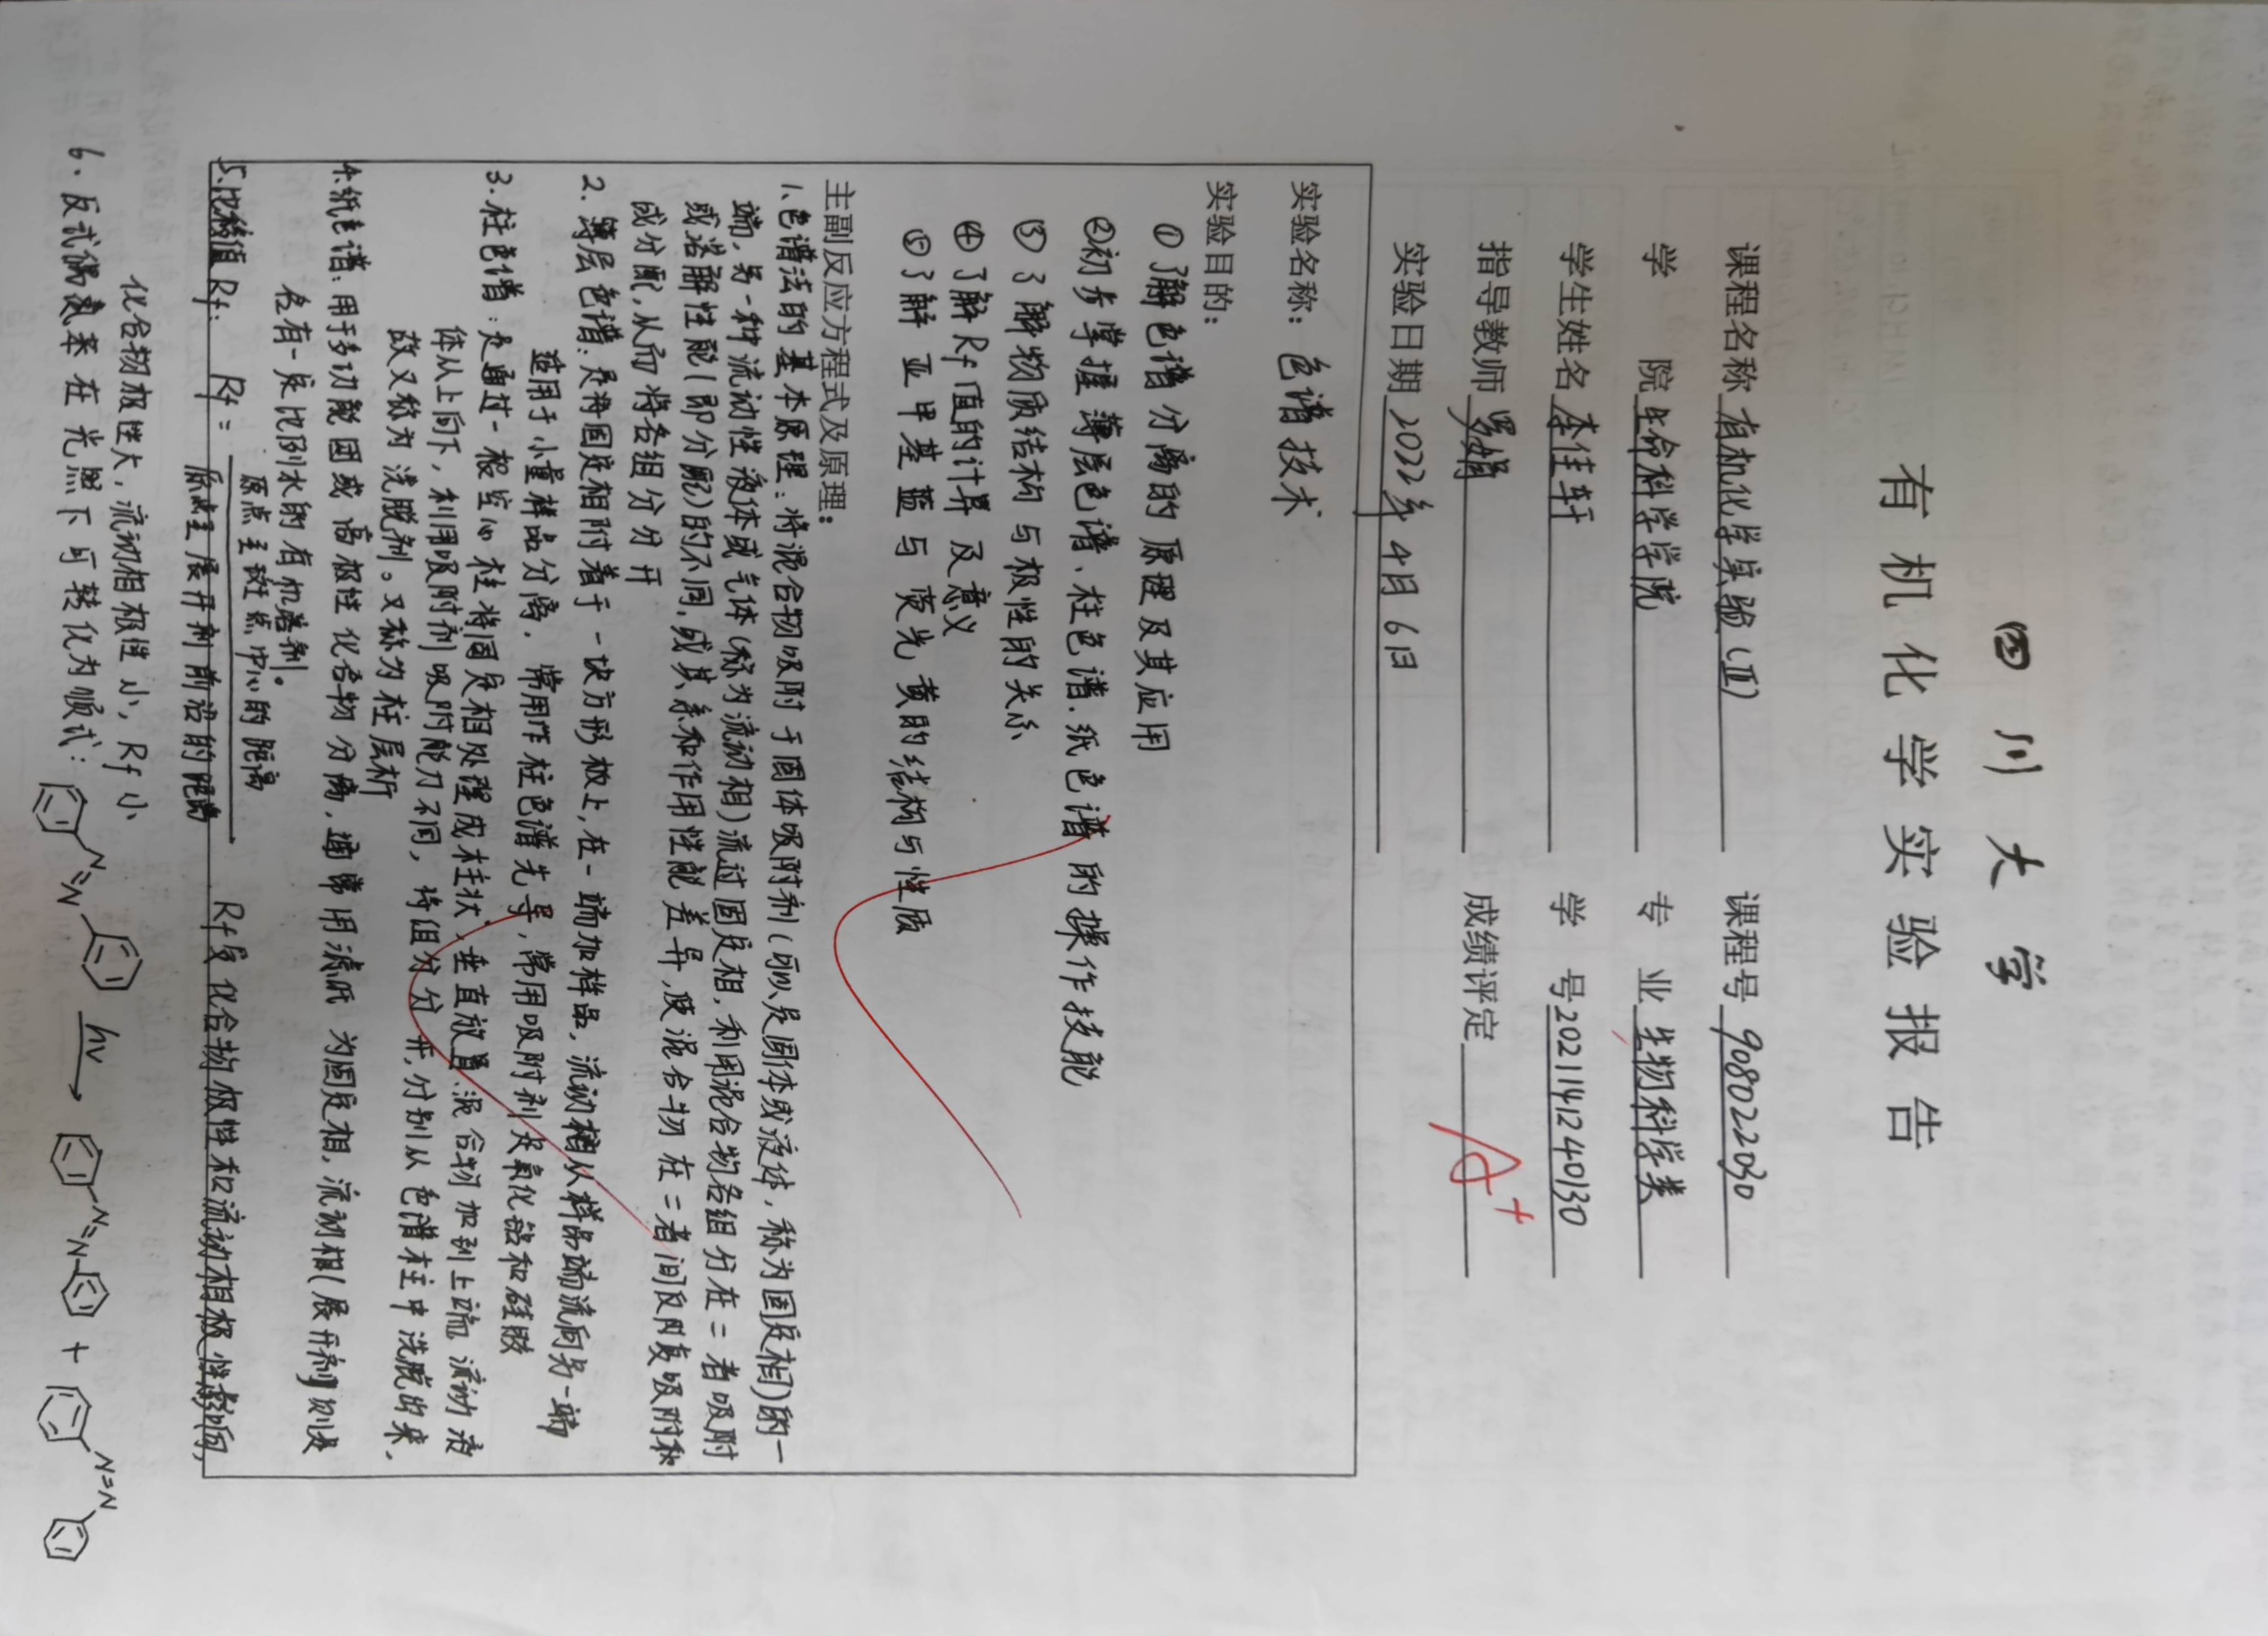 四川大学
有机化学实验报告
课程名称 有机化学实验(Ⅱ) 课程号 908022030
学 院 生命科学学院 专 业 生物科学类
学生姓名 李佳轩 学 号 2021141240130
指导教师 罗娟 成绩评定 A+
实验日期 2022年4月6日
实验名称: 色谱技术
实验目的:
① 了解色谱分离的原理及其应用
②初步掌握薄层色谱、柱色谱、纸色谱的操作技能
③ 了解物质结构与极性的关系
④ 了解Rf值的计算及意义
⑤ 了解亚甲基蓝与荧光黄的结构与性质
主副反应方程式及原理:
1.色谱法的基本原理:将混合物吸附于固体吸附剂(可以是固体或液体,称为固定相)的一
端,另一种流动性液体或气体(称为流动相)流过固定相,利用混合物各组分在二者吸附
或溶解性能(即分配)的不同,或其亲和作用性能差异,使混合物在二者间反复吸附和
成分配,从而将各组分分开
2. 薄层色谱:是将固定相附着于一块方形板上,在一端加样品,流动相从样品端流向另一端
适用于小量样品分离.常用作柱色谱先导,常用吸附剂为氧化铝和硅胶
3.柱色谱:是通过一根空心柱将固定相处理成柱状,垂直放置.混合物加到上端流动液
体从上向下,利用吸附剂吸附能力不同,将组分分开,分别从色谱柱中洗脱出来,
故又称为洗脱剂。又称为柱层析
4.纸色谱:用于多功能团或高极性化合物分离,通常用滤纸为固定相,流动相(展开剂)则为
含有一定比例水的有机溶剂。
5.比移值Rf: Rf = 原点至斑点中心的距离 / 原点至展开剂前沿的距离. Rf受化合物极性和流动相极性影响,
化合物极性大,流动相极性小,Rf小
6、反式偶氮苯在光照下可转化为顺式: N=N hν N=N + N=N